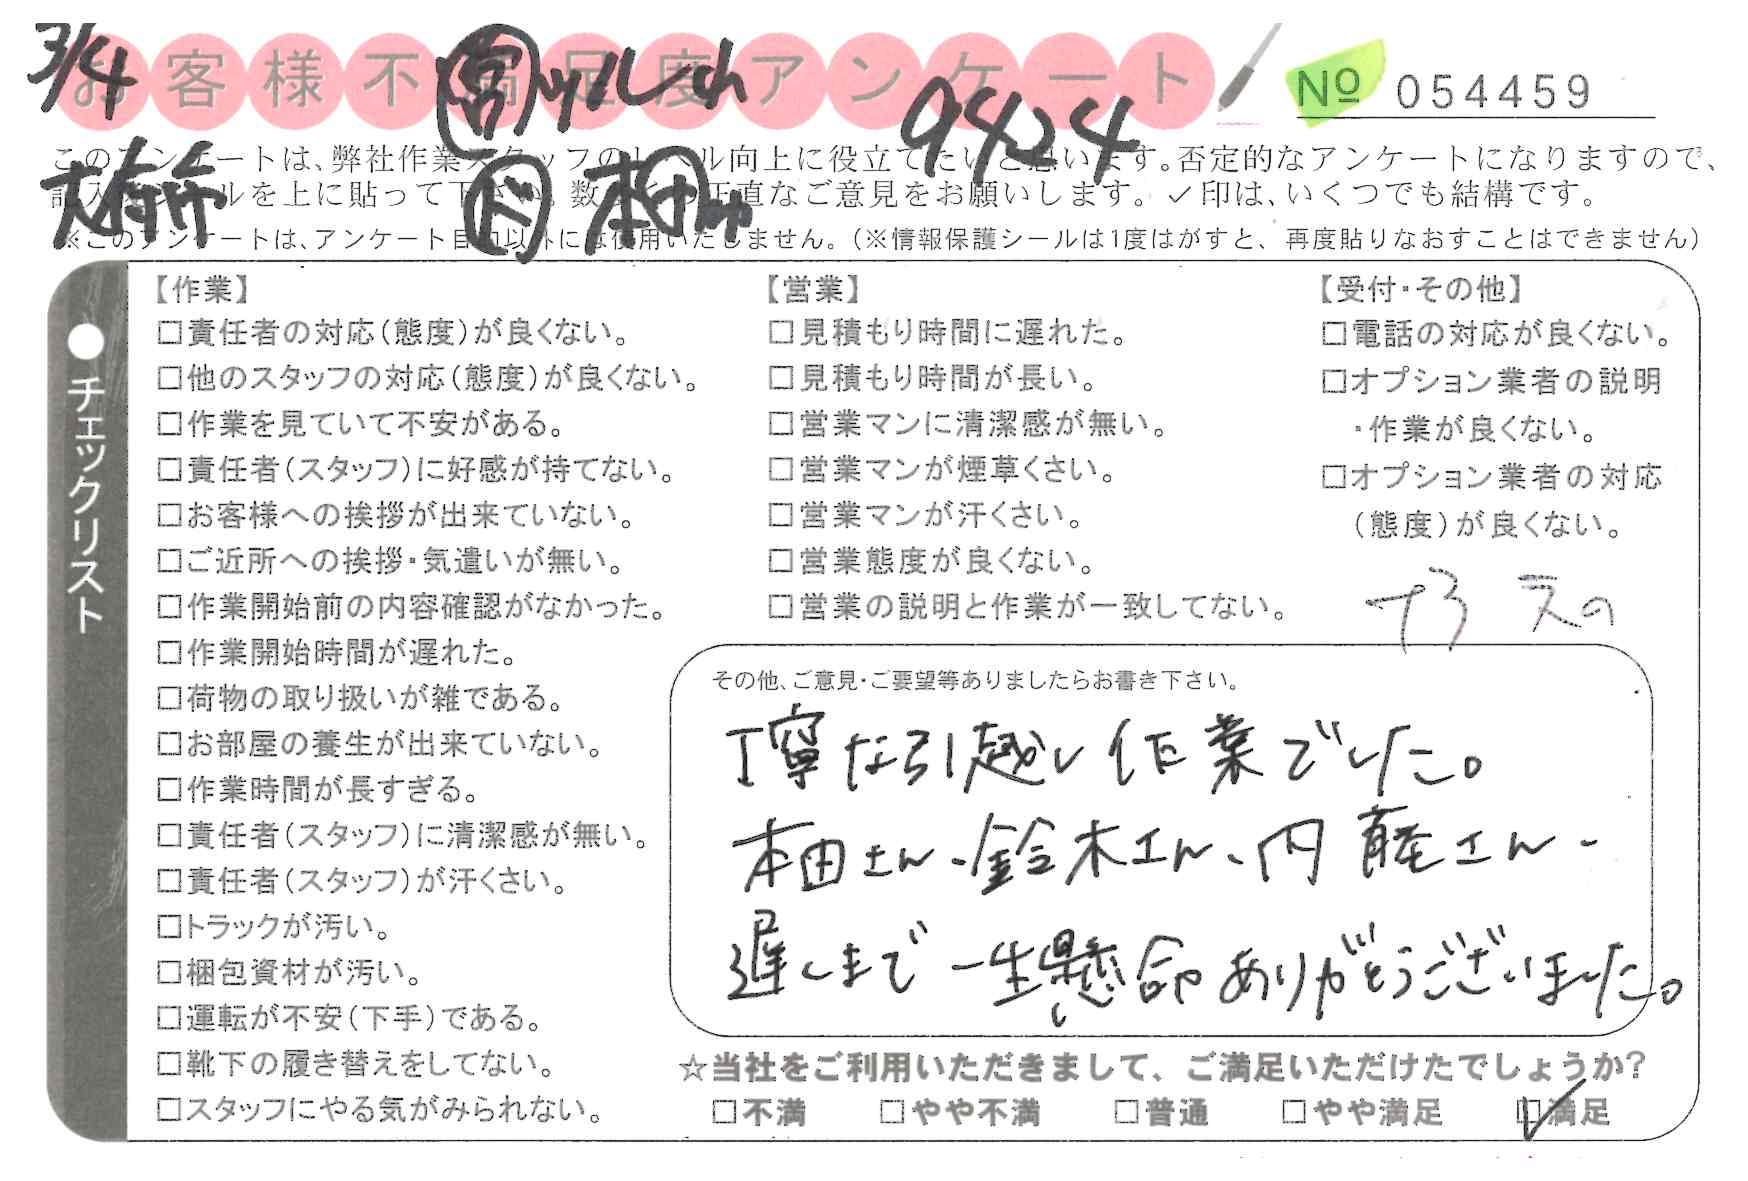 3/4
お客様不満足度アンケート
№ 054459
9424
このアンケートは、弊社作業スタッフのレベル向上に役立てたいと思います。否定的なアンケートになりますので、
記入後シールを上に貼って下さい。数多くの正直なご意見をお願いします。✓印は、いくつでも結構です。
本田
※このアンケートは、アンケート目的以外には使用いたしません。(※情報保護シールは1度はがすと、再度貼りなおすことはできません)
●チェックリスト
【作業】
□責任者の対応(態度)が良くない。
□他のスタッフの対応(態度)が良くない。
□作業を見ていて不安がある。
□責任者(スタッフ)に好感が持てない。
□お客様への挨拶が出来ていない。
□ご近所への挨拶・気遣いが無い。
□作業開始前の内容確認がなかった。
□作業開始時間が遅れた。
□荷物の取り扱いが雑である。
□お部屋の養生が出来ていない。
□作業時間が長すぎる。
□責任者(スタッフ)に清潔感が無い。
□責任者(スタッフ)が汗くさい。
□トラックが汚い。
□梱包資材が汚い。
□運転が不安(下手)である。
□靴下の履き替えをしてない。
□スタッフにやる気がみられない。
【営業】
□見積もり時間に遅れた。
□見積もり時間が長い。
□営業マンに清潔感が無い。
□営業マンが煙草くさい。
□営業マンが汗くさい。
□営業態度が良くない。
□営業の説明と作業が一致してない。
【受付・その他】
□電話の対応が良くない。
□オプション業者の説明
・作業が良くない。
□オプション業者の対応
(態度)が良くない。
その他、ご意見・ご要望等ありましたらお書き下さい。
丁寧な引越し作業でした。
本田さん、鈴木さん、内藤さん、
遅くまで一生懸命ありがとうございました。
☆当社をご利用いただきまして、ご満足いただけたでしょうか?
□不満 □やや不満 □普通 □やや満足 ☑満足